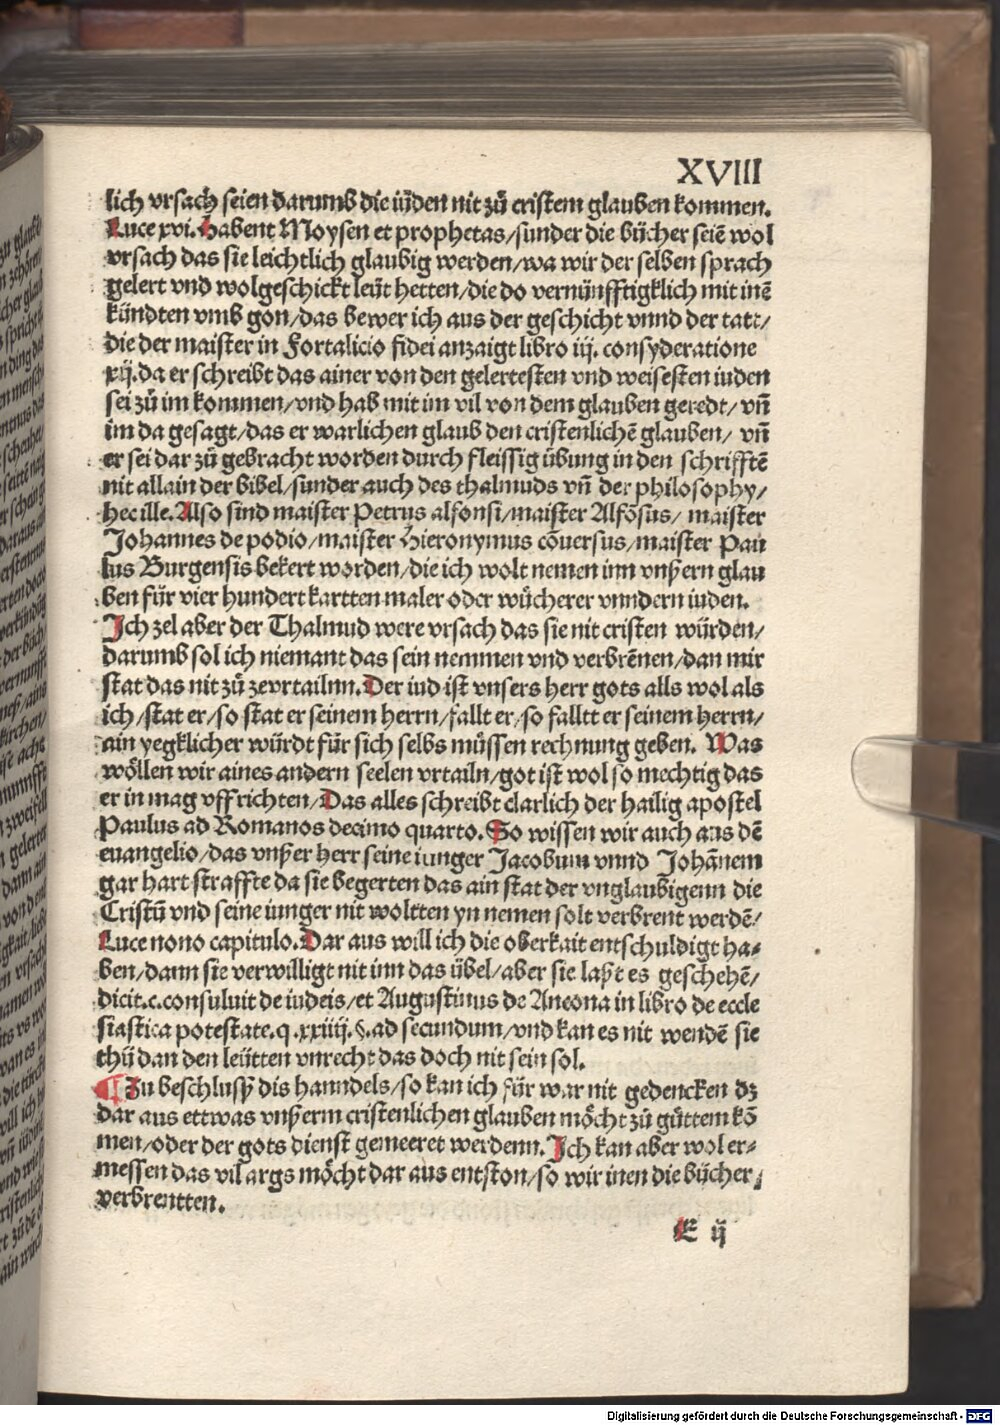 XVIII
lich vrsach seien darumb die iüden nit zů cristem glauben kommen.
Luce xvi. Habent Moysen et prophetas/sunder die bücher seiē wol
vrsach das sie leichtlich glaubig werden/wa wir der selben sprach
gelert vnd wolgeschickt leüt hetten/die do vernünfftigklich mit inē
kündten vmb gon/das bewer ich aus der geschicht vnnd der tatt/
die der maister in Fortalicio fidei anzaigt libro iij. consyderatione
xij. da er schreibt das ainer von den gelertesten vnd weisesten iuden
sei zů im kommen/vnd hab mit im vil von dem glauben geredt/ vñ
im da gesagt/das er warlichen glaub den cristenlichē glauben/ vñ
er sei dar zů gebracht worden durch fleissig übung in den schrifftē
nit allain der bibel/sunder auch des thalmuds vñ der philosophy/
hec ille. Also sind maister Petrus alfonsi/maister Alfōsus/ maister
Johannes de podio/maister Hieronymus cōuersus/maister Pau
lus Burgensis bekert worden/die ich wolt nemen inn vnßern glau
ben für vier hundert kartten maler oder wůcherer vnndern iuden.
Ich zel aber der Thalmud were vrsach das sie nit cristen würden/
darumb sol ich niemant das sein nemmen vnd verbrēnen/dan mir
stat das nit zů zevrtailnn. Der iud ist vnsers herr gots alls wol als
ich/stat er/so stat er seinem herrn/fallt er/so falltt er seinem herrn/
ain yegklicher würdt für sich selbs müssen rechnung geben. Was
wöllen wir aines andern seelen vrtailn/got ist wol so mechtig das
er in mag vffrichten/Das alles schreibt clarlich der hailig apostel
Paulus ad Romanos decimo quarto. So wissen wir auch aus dē
euangelio/das vnßer herr seine iunger Jacobum vnnd Johānem
gar hart straffte da sie begerten das ain stat der vnglaubigenn die
Cristū vnd seine iunger nit woltten yn nemen solt verbrent werdē/
Luce nono capitulo. Dar aus will ich die oberkait entschuldigt ha-
ben/dann sie verwilligt nit inn das übel/aber sie laßt es geschehē/
dicit.c.consuluit de iudeis/et Augustinus de Ancona in libro de eccle
siastica potestate.q.xxiiij.§.ad secundum/vnd kan es nit wendē sie
thů dan den leütten vnrecht das doch nit sein sol.
¶ Zu beschlusß dis hanndels/so kan ich für war nit gedencken dz
dar aus ettwas vnßerm cristenlichen glauben möcht zů gůttem kō
men/oder der gots dienst gemeeret werdenn. Ich kan aber wol er-
messen das vil args möcht dar aus entston/so wir inen die bücher
verbrentten.
E ij
Digitalisierung gefördert durch die Deutsche Forschungsgemeinschaft - DFG